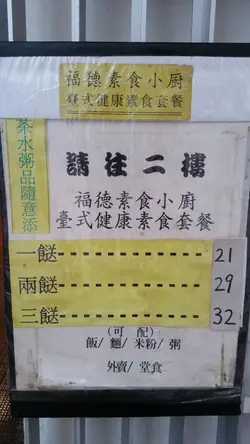 福德素食小廚
臺式健康素食套餐
茶水粥品隨意添
請往二樓
福德素食小廚
臺式健康素食套餐
一餸-----------21
兩餸-----------29
三餸-----------32
(可 配)
飯/ 麵/ 米粉/ 粥
外賣/ 堂食